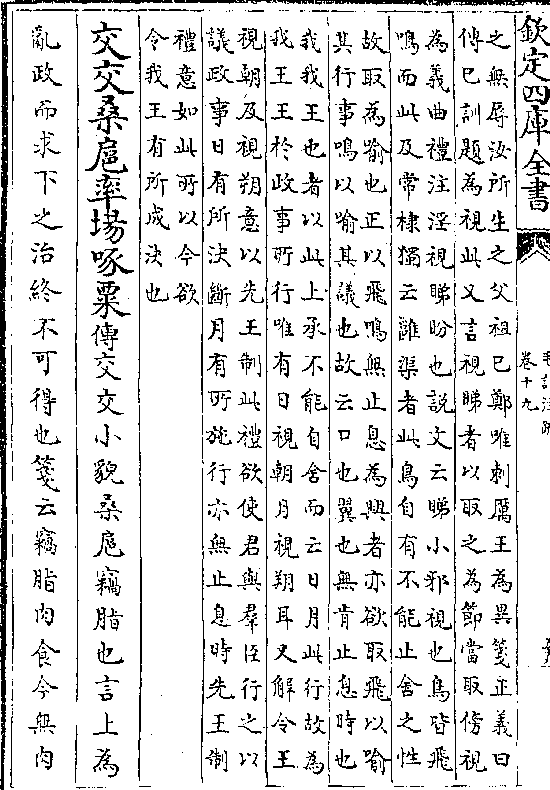 欽定四庫全書
毛詩注疏
卷十九
之無辱汝所生之父祖已鄭唯刺厲王為異箋正義曰
傳已訓題為視此又言視睇者以取之為節當取傍視
為義曲禮注淫視睇盼也説文云睇小邪視也鳥皆飛
鳴而此及常棣獨云雝渠者此鳥自有不能止舍之性
故取為喻也正以飛鳴無止息為興者亦欲取飛以喻
其行事鳴以喻其議也故云口也翼也無肯止息時也
我我王也者以此上承不能自舍而云日月此行故為
我王王於政事所行唯有日視朝月視朔耳又解令王
視朝及視朔意以先王制此禮欲使君與羣臣行之以
議政事日有所決斷月有所施行亦無止息時先王制
禮意如此所以今欲
令我王有所成決也
交交桑扈率場啄粟傳交交小貌桑扈竊脂也言上為
亂政而求下之治終不可得也箋云竊脂肉食今無肉